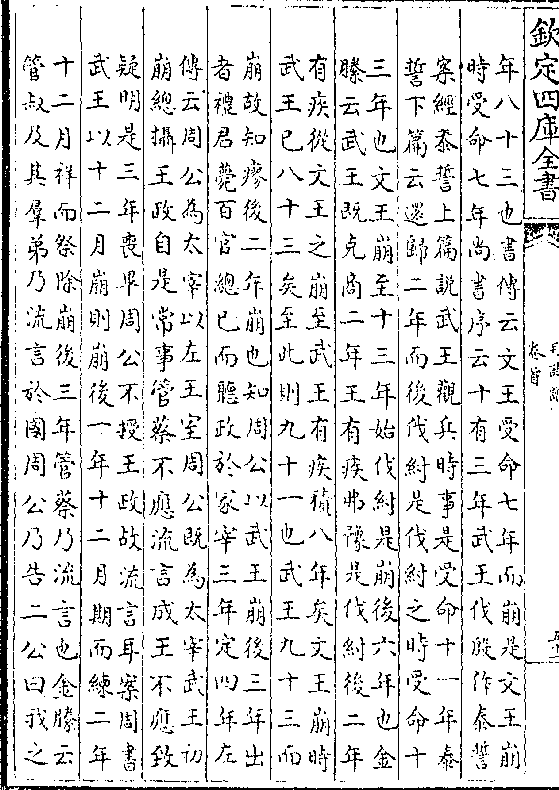 欽定四庫全書
年八十三也書傳云文王受命七年而崩是文王崩
時受命七年尚書序云十有三年武王伐殷作泰誓
案經泰誓上篇說武王觀兵時事是受命十一年泰
誓下篇云還歸二年而後伐紂是伐紂之時受命十
三年也文王崩至十三年始伐紂是崩後六年也金
縢云武王既克商二年王有疾弗豫是伐紂後二年
有疾從文王之崩至武王有疾積八年矣文王崩時
武王已八十三矣至此則九十一也武王九十三而
崩故知瘳後二年崩也知周公以武王崩後三年出
者禮君薨百官總已而聽政於冢宰三年定四年左
傳云周公為太宰以左王室周公既為太宰武王初
崩總攝王政自是常事管蔡不應流言成王不應致
疑明是三年喪畢周公不授王政故流言耳案周書
武王以十二月崩則崩後一年十二月期而練二年
十二月祥而祭除崩後三年管蔡乃流言也金縢云
管叔及其羣弟乃流言於國周公乃告二公曰我之